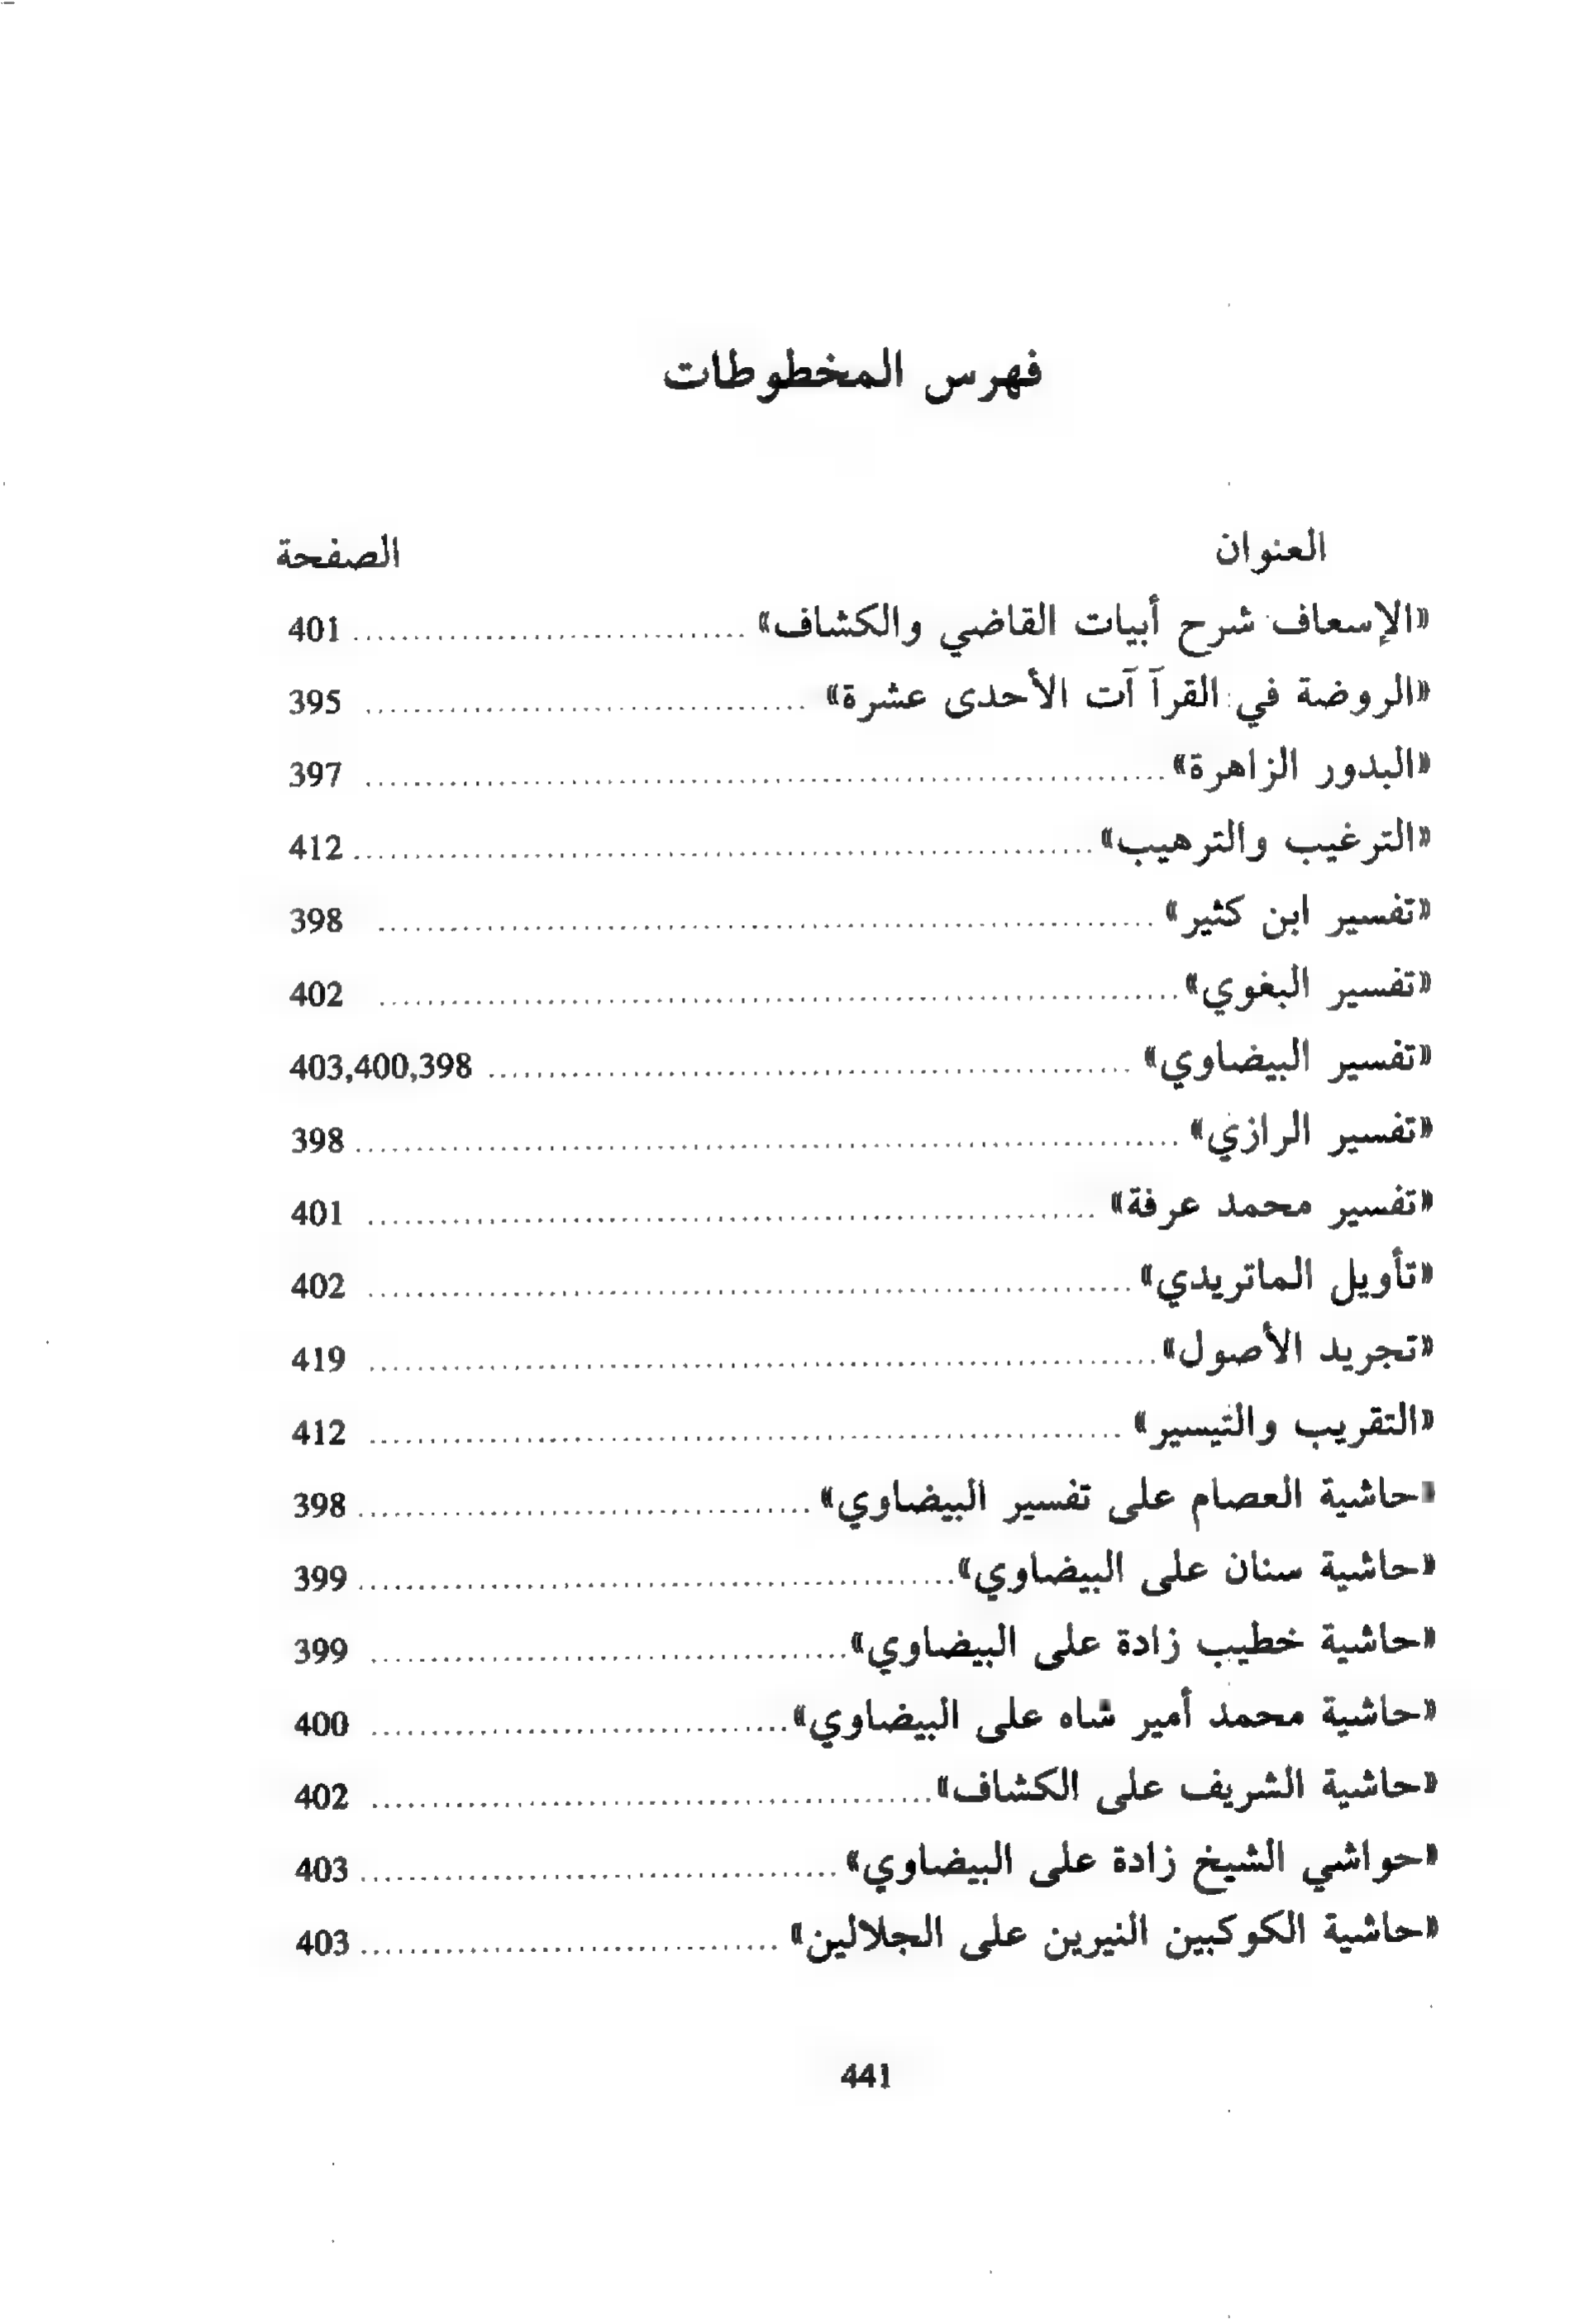 فهرس المخطوطات
العنوان الصفحة
«الإسعاف شرح أبيات القاضي والكشاف» 401
«الروضة في القرآ آت الأحدى عشرة» 395
«البدور الزاهرة» 397
«الترغيب والترهيب» 412
«تفسير ابن كثير» 398
«تفسير البغوي» 402
«تفسير البيضاوي» 403,400,398
«تفسير الرازي» 398
«تفسير محمد عرفة» 401
«تأويل الماتريدي» 402
«تجريد الأصول» 419
«التقريب والتيسير» 412
«حاشية العصام على تفسير البيضاوي» 398
«حاشية سنان على البيضاوي» 399
«حاشية خطيب زادة على البيضاوي» 399
«حاشية محمد أمير شاه على البيضاوي» 400
«حاشية الشريف على الكشاف» 402
«حواشي الشيخ زادة على البيضاوي» 403
«حاشية الكوكبين النيرين على الجلالين» 403
441